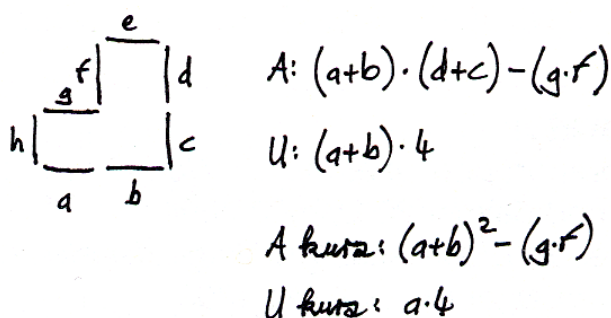 e
f
d
g
h
c
a
b
A: (a+b)·(d+c)-(g·f)
U: (a+b)·4
A kurz: (a+b)²-(g·f)
U kurz: a·4